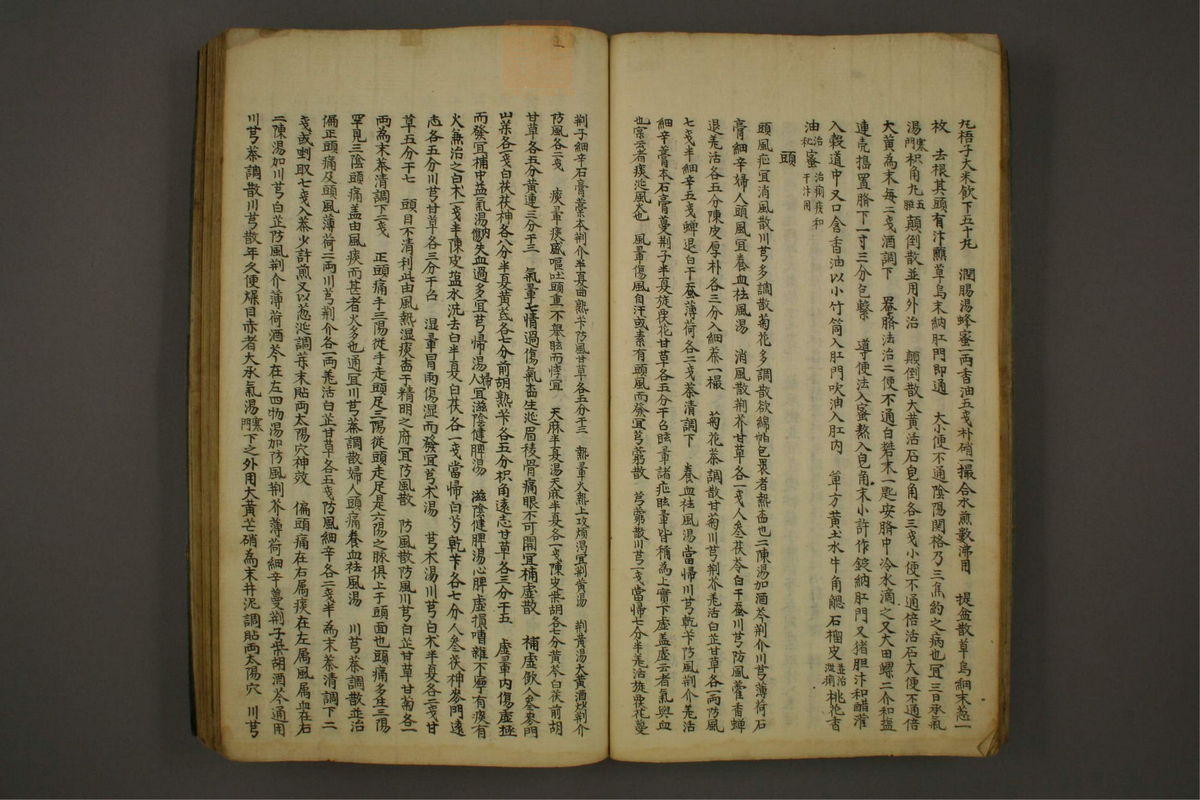 丸梧子大米飲下五十丸　潤腸湯蜂蜜一兩香油五戔朴硝一撮合水煎數沸用　提盆散草烏細末葱一
枚　去根其頭有汁蘸草烏末納肛門即通　大小便不通陰陽関格乃三焦約之病也宜三日承氣
湯寒門枳角丸五胆顛倒散並用外治　顛倒散大黃活石皂角各三戔小便不通倍活石大便不通倍
大黃為末每二戔酒調下　罨臍法治二便不通白礬末一匙安臍中冷水滴之又大田螺二介和塩
連壳搗置臍下一寸三分包繫　導便法入蜜熬入皂角末小許作錠納肛門又猪胆汁和醋灌
入穀道中又口含香油以小竹筒入肛門吹油入肛內　單方黃土水牛角鰓石榴皮並治泄痢桃花香
油治秘蜜治痢痰和干汁用
頭
頭風症宜消風散川芎多調散菊花多調散欲綿帕包裹者熱盍也二陳湯加酒芩荊介川芎薄荷石
膏細辛婦人頭風宜養血祛風湯　消風散荊芥甘草各一戔人參茯苓白干蚕川芎防風藿香蟬
退羌活各五分陳皮厚朴各三分入細茶一撮　菊花茶調散甘菊川芎荊芥羌活白芷甘草各一兩防風
七戔半細辛五戔蟬退白干蚕薄荷各二戔茶清調下　養血祛風湯當帰川芎乾苄防風荊介羌活
細辛藁本石膏蔓荊子半夏旋覆花甘草各五分干召眩暈諸症眩暈皆稱為上實下虛盖虛云者氣與血
也實云者痰涎風火也　風暈傷風自汗或素有頭風而發宜芎䓖散　芎䓖散川芎一戔當帰七分半羌活旋覆花蔓
荊子細辛石膏藁本荊介半夏曲熟苄防風甘草各五分干三　熱暈火熱上攻煩渴宜荊黃湯　荊黃湯大黃酒炒荊介
防風各二戔　痰暈痰盛嘔吐頭重不舉眩而悸宜　天麻半夏湯天麻半夏各一戔陳皮柴胡各七分黃芩白茯前胡
甘草各五分黃連三分干三　氣暈七情過傷氣盍生涎眉稜骨痛眼不可開宜補虛散　補虛飲人參麥門
山茱各一戔白茯茯神各八分半夏黃芪各七分前胡熟苄各五分枳角遠志甘草各三分干五　虛暈內傷虛極
而發宜補中益氣湯衂失血過多宜芎帰湯婦人宜滋陰健脾湯　滋陰健脾湯心脾虛損嘈雜不寧有痰有
火兼治之白木一戔半陳皮塩水洗去白半夏白茯各一戔當帰白芍乾苄各七分人參茯神麥門遠
志各五分川芎甘草各三分干召　湿暈冒雨傷湿而發宜芎朮湯　芎朮湯川芎白朮半夏各二戔甘
草五分干七　頭目不清利此由風熱湿痰盍于精明之府宜防風散　防風散防風川芎白芷甘草甘菊各一
兩為末茶清調下二戔　正頭痛手三陽從手走頭足三陽從頭走足是六陽之脉俱上于頭面也頭痛多在三陽
罕見三陰頭痛盖由風痰而甚者火多也通宜川芎茶調散婦人頭痛養血祛風湯　川芎茶調散並治
偏正頭痛及頭風薄荷二兩川芎荊介各一兩羌活白芷甘草各五戔防風細辛各二戔半為末茶清調下二
戔或剉取七戔入茶少許煎又以葱涎調茶末貼兩太陽穴神效　偏頭痛在右属痰在左属風属血在右
二陳湯加川芎白芷防風荊介薄荷酒芩在左四物湯加防風荊芥薄荷細辛蔓荊子柴胡酒芩通用
川芎茶調散川芎散年久便燥目赤者大承氣湯寒門下之外用大黃芒硝為末井泥調貼兩太陽穴　川芎